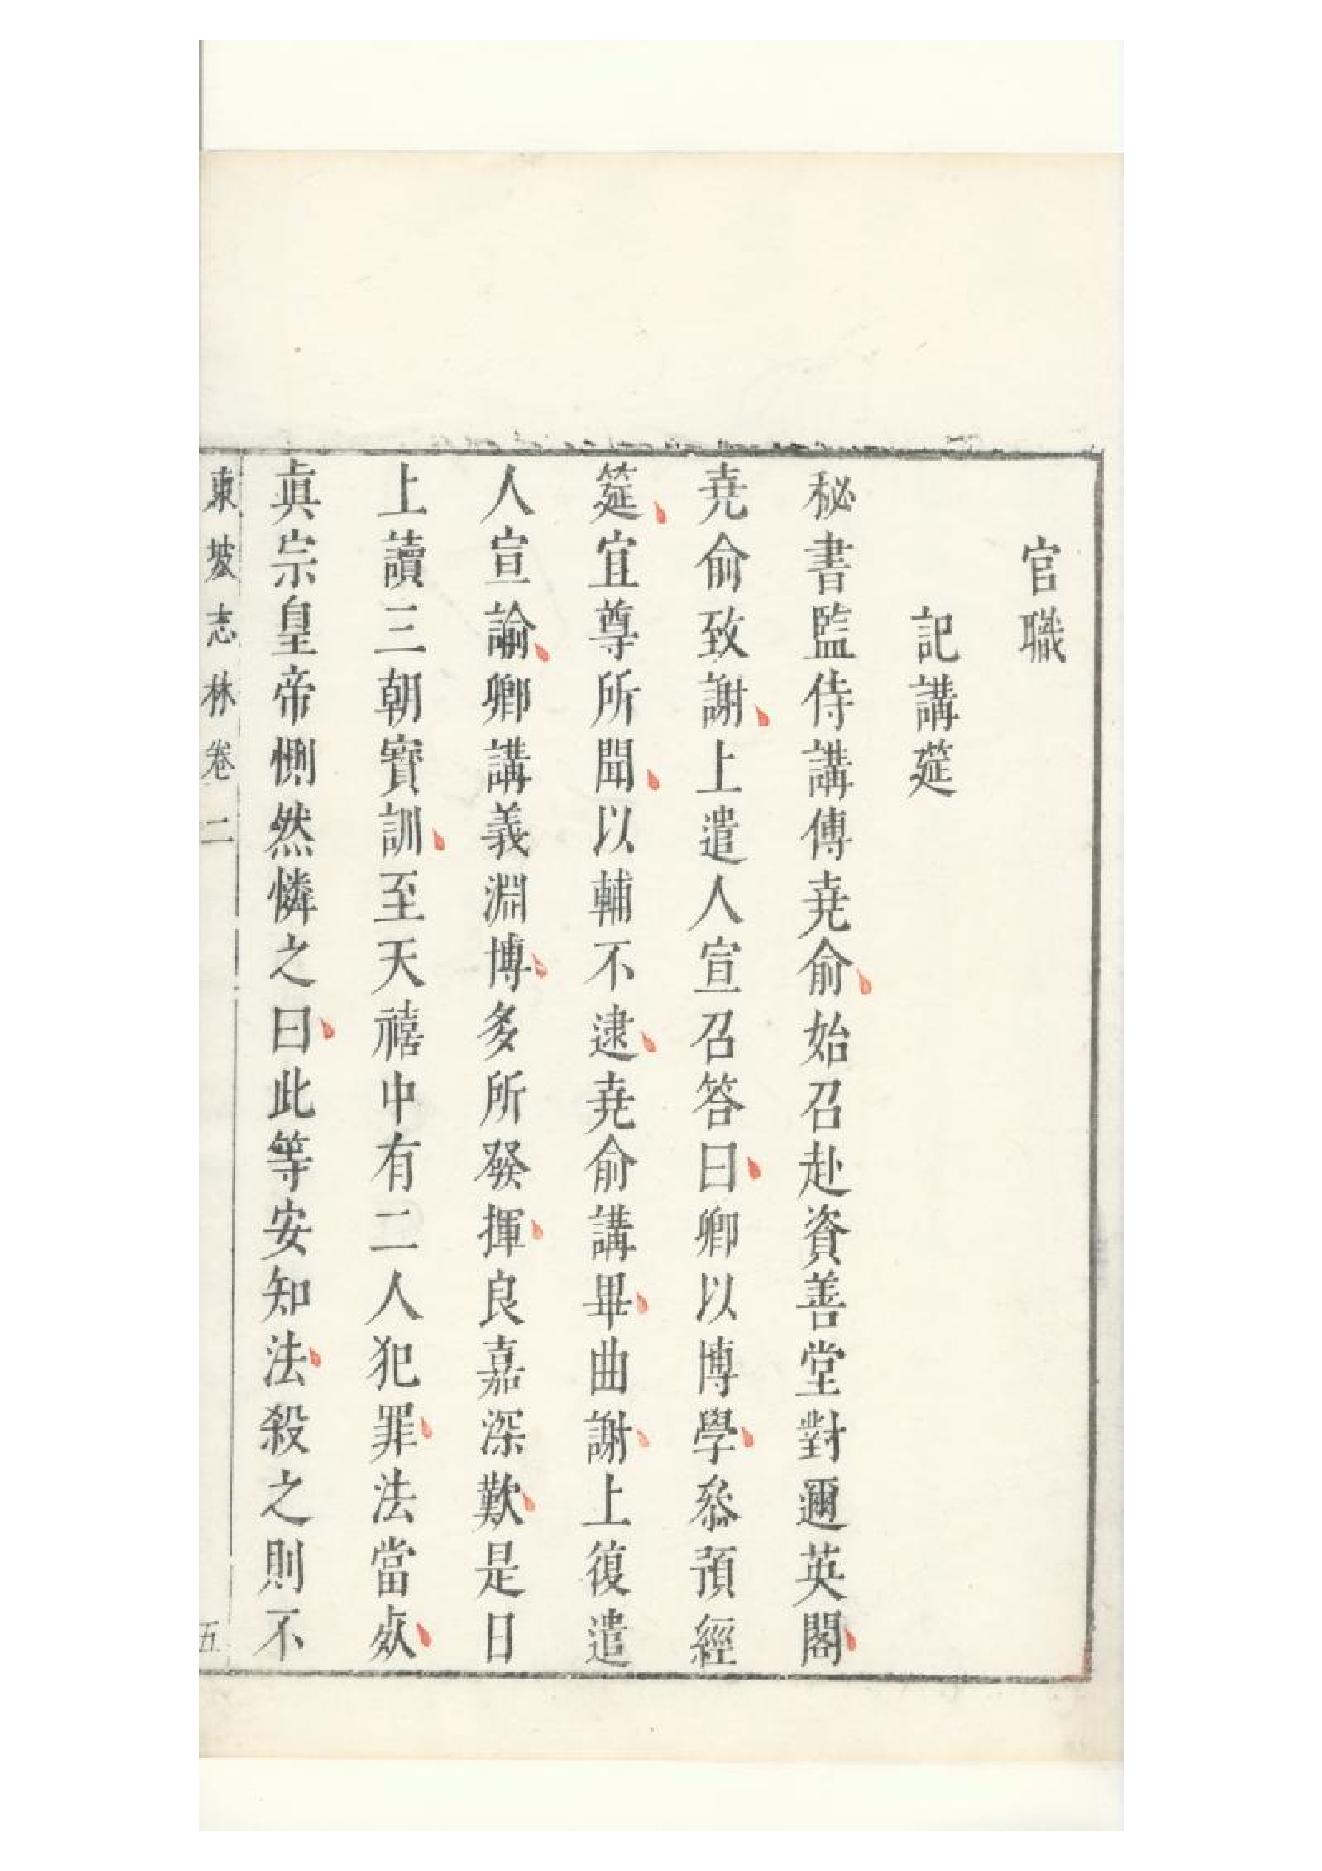 官職
記講筵
秘書監侍講傅堯俞始召赴資善堂對邇英閣
堯俞致謝上遣人宣召答曰卿以博學叅預經
筵宜尊所聞以輔不逮堯俞講畢曲謝上復遣
人宣諭卿講義淵博多所發揮良嘉深歎是日
上讀三朝寳訓至天禧中有二人犯罪法當𣦸
眞宗皇帝惻然憐之曰此等安知法殺之則不
東坡志林卷二
五